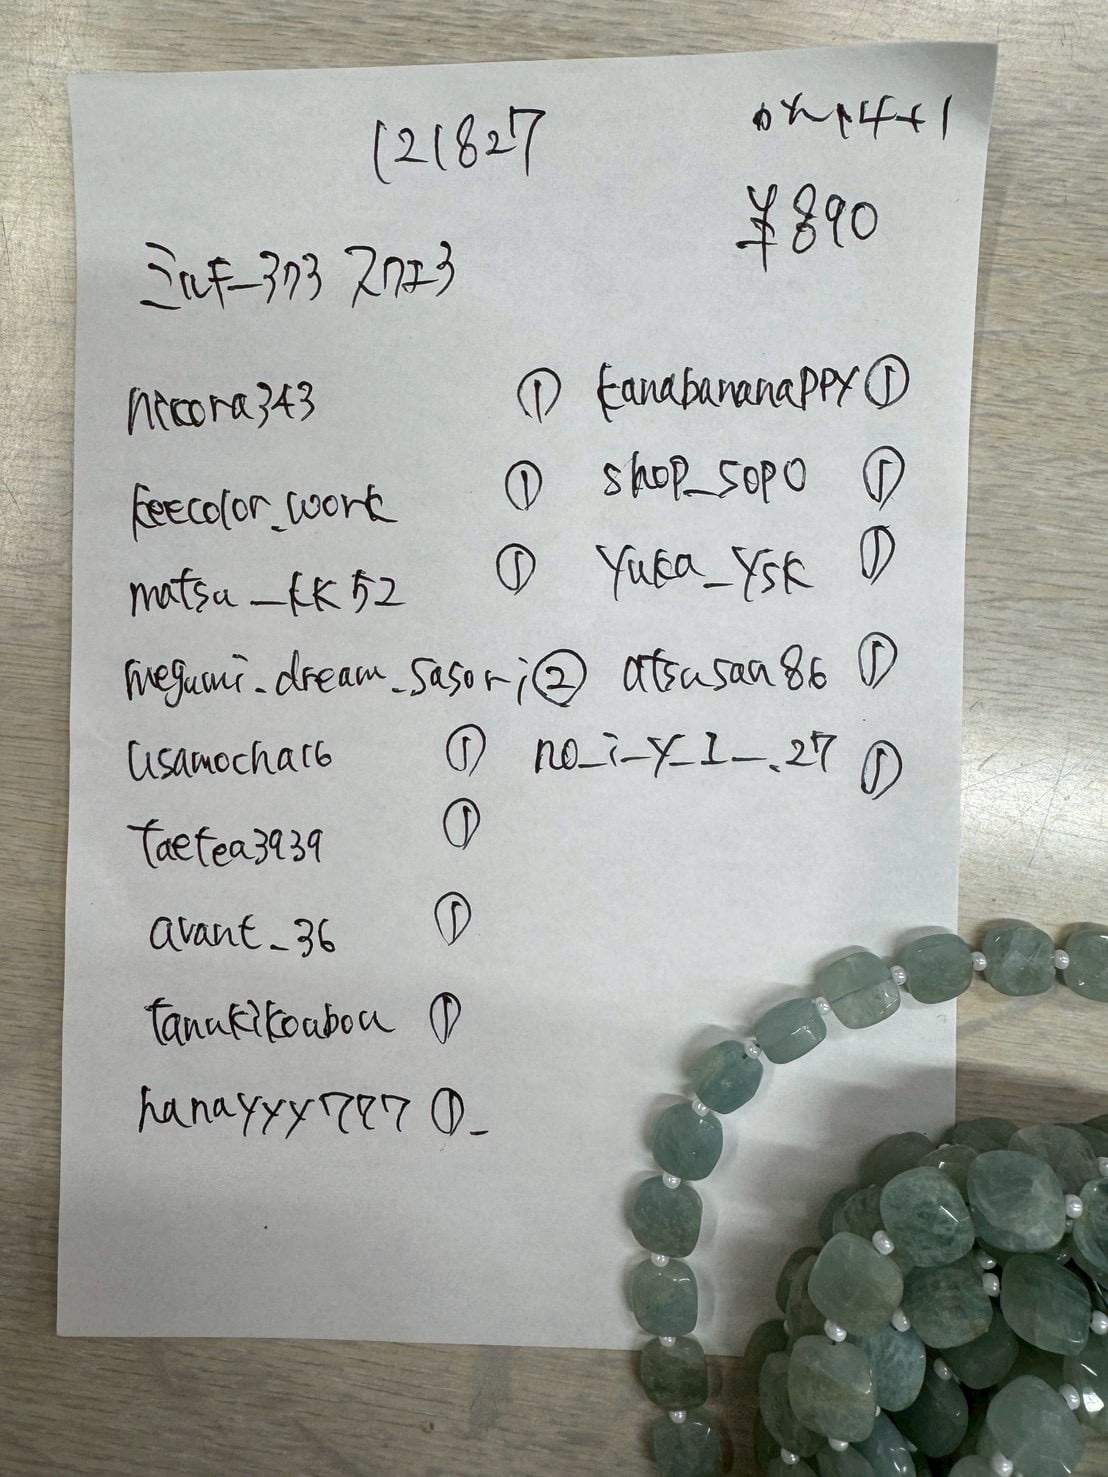 121827
¥890
ミルキー373 スクエア
nicora343 ①
keecolor_work ①
matsu_kk52 ①
megumi_dream_sasori ②
usamocha16 ①
taetea3939 ①
avant_36 ①
tanukikoubou ①
hanayyy777 ①
kanabananappy ①
shop_sopo ①
yuka_ysk ①
atsusan86 ①
no_i_y_I_.27 ①